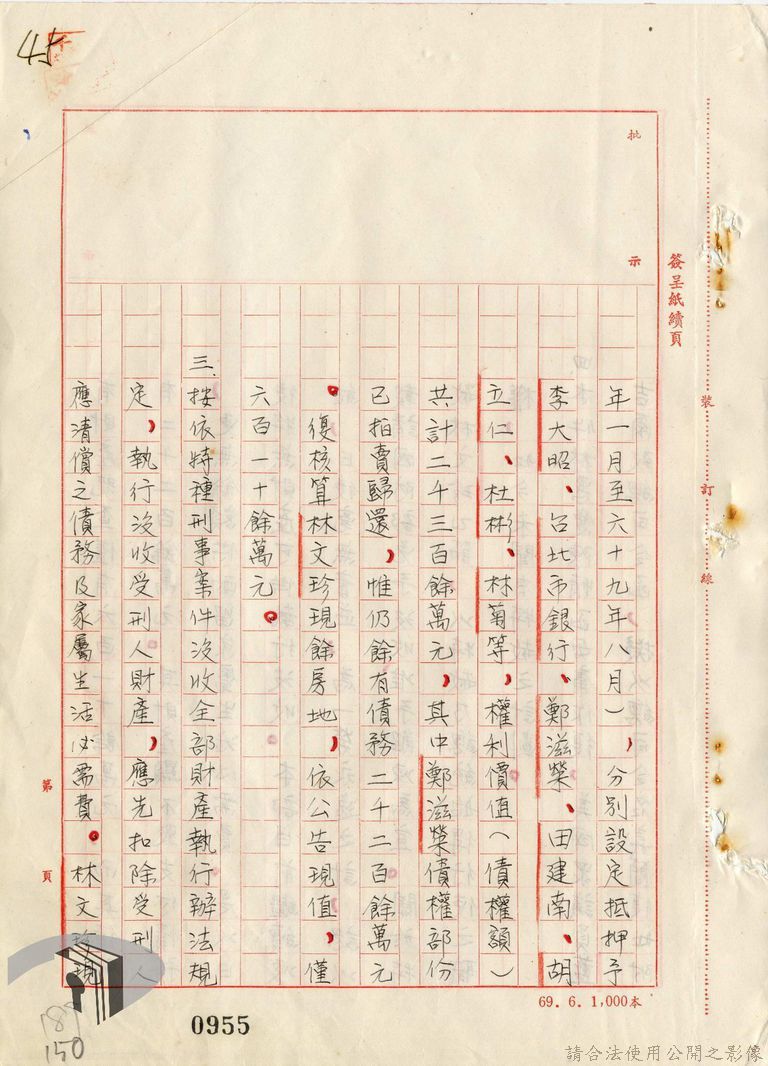 45
批示
簽呈紙續頁
裝訂線
年一月至六十九年八月），分別設定抵押予
李大昭、台北市銀行、鄭滋榮、田建南、胡
立仁、杜彬、林菊等，權利價值（債權額）
共計二千三百餘萬元，其中鄭滋榮債權部份
已拍賣歸還，惟仍餘有債務二千二百餘萬元
。復核算林文珍現餘房地，依公告現值，僅
六百一十餘萬元。
三、按依特種刑事案件沒收全部財產執行辦法規
定，執行沒收受刑人財產，應先扣除受刑人
應清償之債務及家屬生活必需費。林文珍現
第 頁
69. 6. 1,000本
0955
150
請合法使用公開之影像